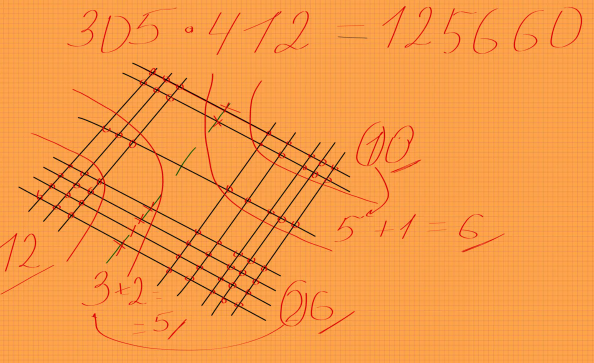 305 · 412 = 125660
(1)0
5 + 1 = 6
12
3 + 2 =
= 5
(2)6